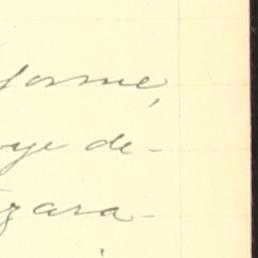 forme,
oye de-
zara-